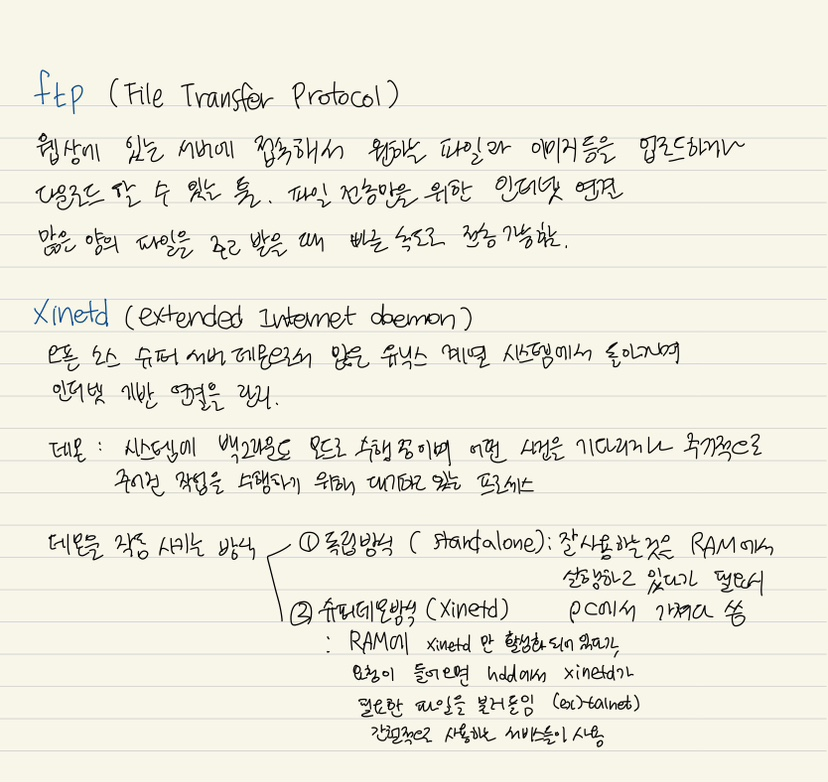 ftp (File Transfer Protocol)
웹상에 있는 서버에 접속해서 원하는 파일과 이미지 등을 업로드하거나
다운로드 할 수 있는 툴. 파일 전송만을 위한 인터넷 연결
많은 양의 파일을 주고 받을 때 빠른 속도로 전송 가능함.
xinetd (extended Internet daemon)
오픈 소스 슈퍼 서버 데몬으로서 많은 유닉스 계열 시스템에서 돌아가며
인터넷 기반 연결을 관리.
데몬 : 시스템에 백그라운드 모드로 수행 중이며 어떤 사건을 기다리거나 주기적으로
주어진 작업을 수행하기 위해 대기하고 있는 프로세스
데몬을 작동 시키는 방식 ① 독립방식 ( standalone) : 잘 사용하는 것은 RAM에서
실행하고 있다가 필요시
② 슈퍼데몬방식 (xinetd) PC에서 가져다 씀
: RAM에 xinetd 만 활성화 되어 있다가,
요청이 들어오면 hdd에서 xinetd가
필요한 파일을 불러들임 (ex)talnet)
간헐적으로 사용하는 서비스들이 사용